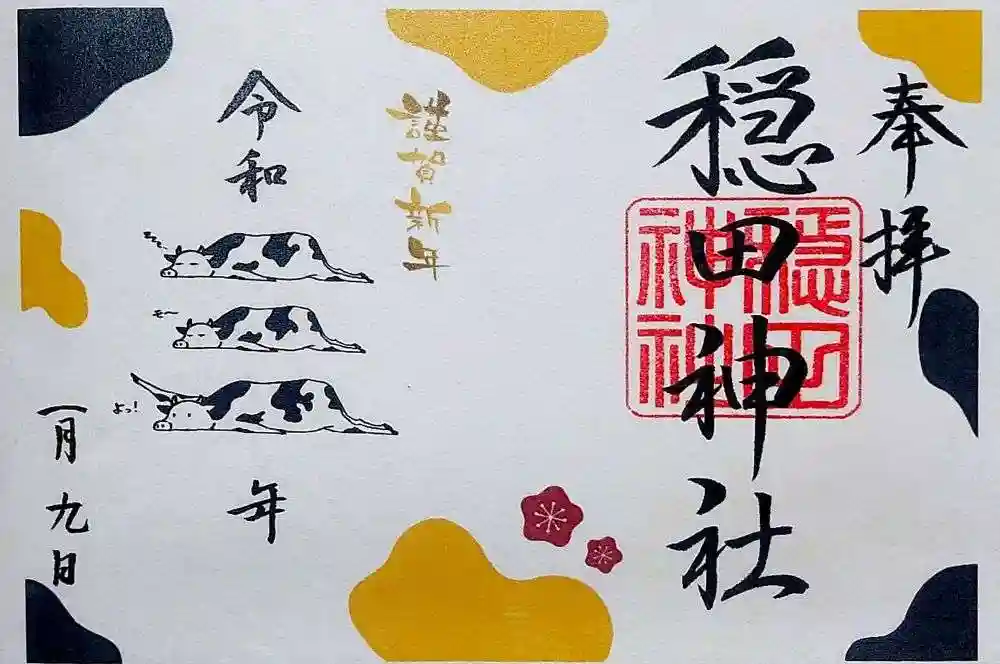 奉拝
穏田神社
穏田
神社
謹賀新年
令和
zzz
モ〜
よっ!
年
一月九日